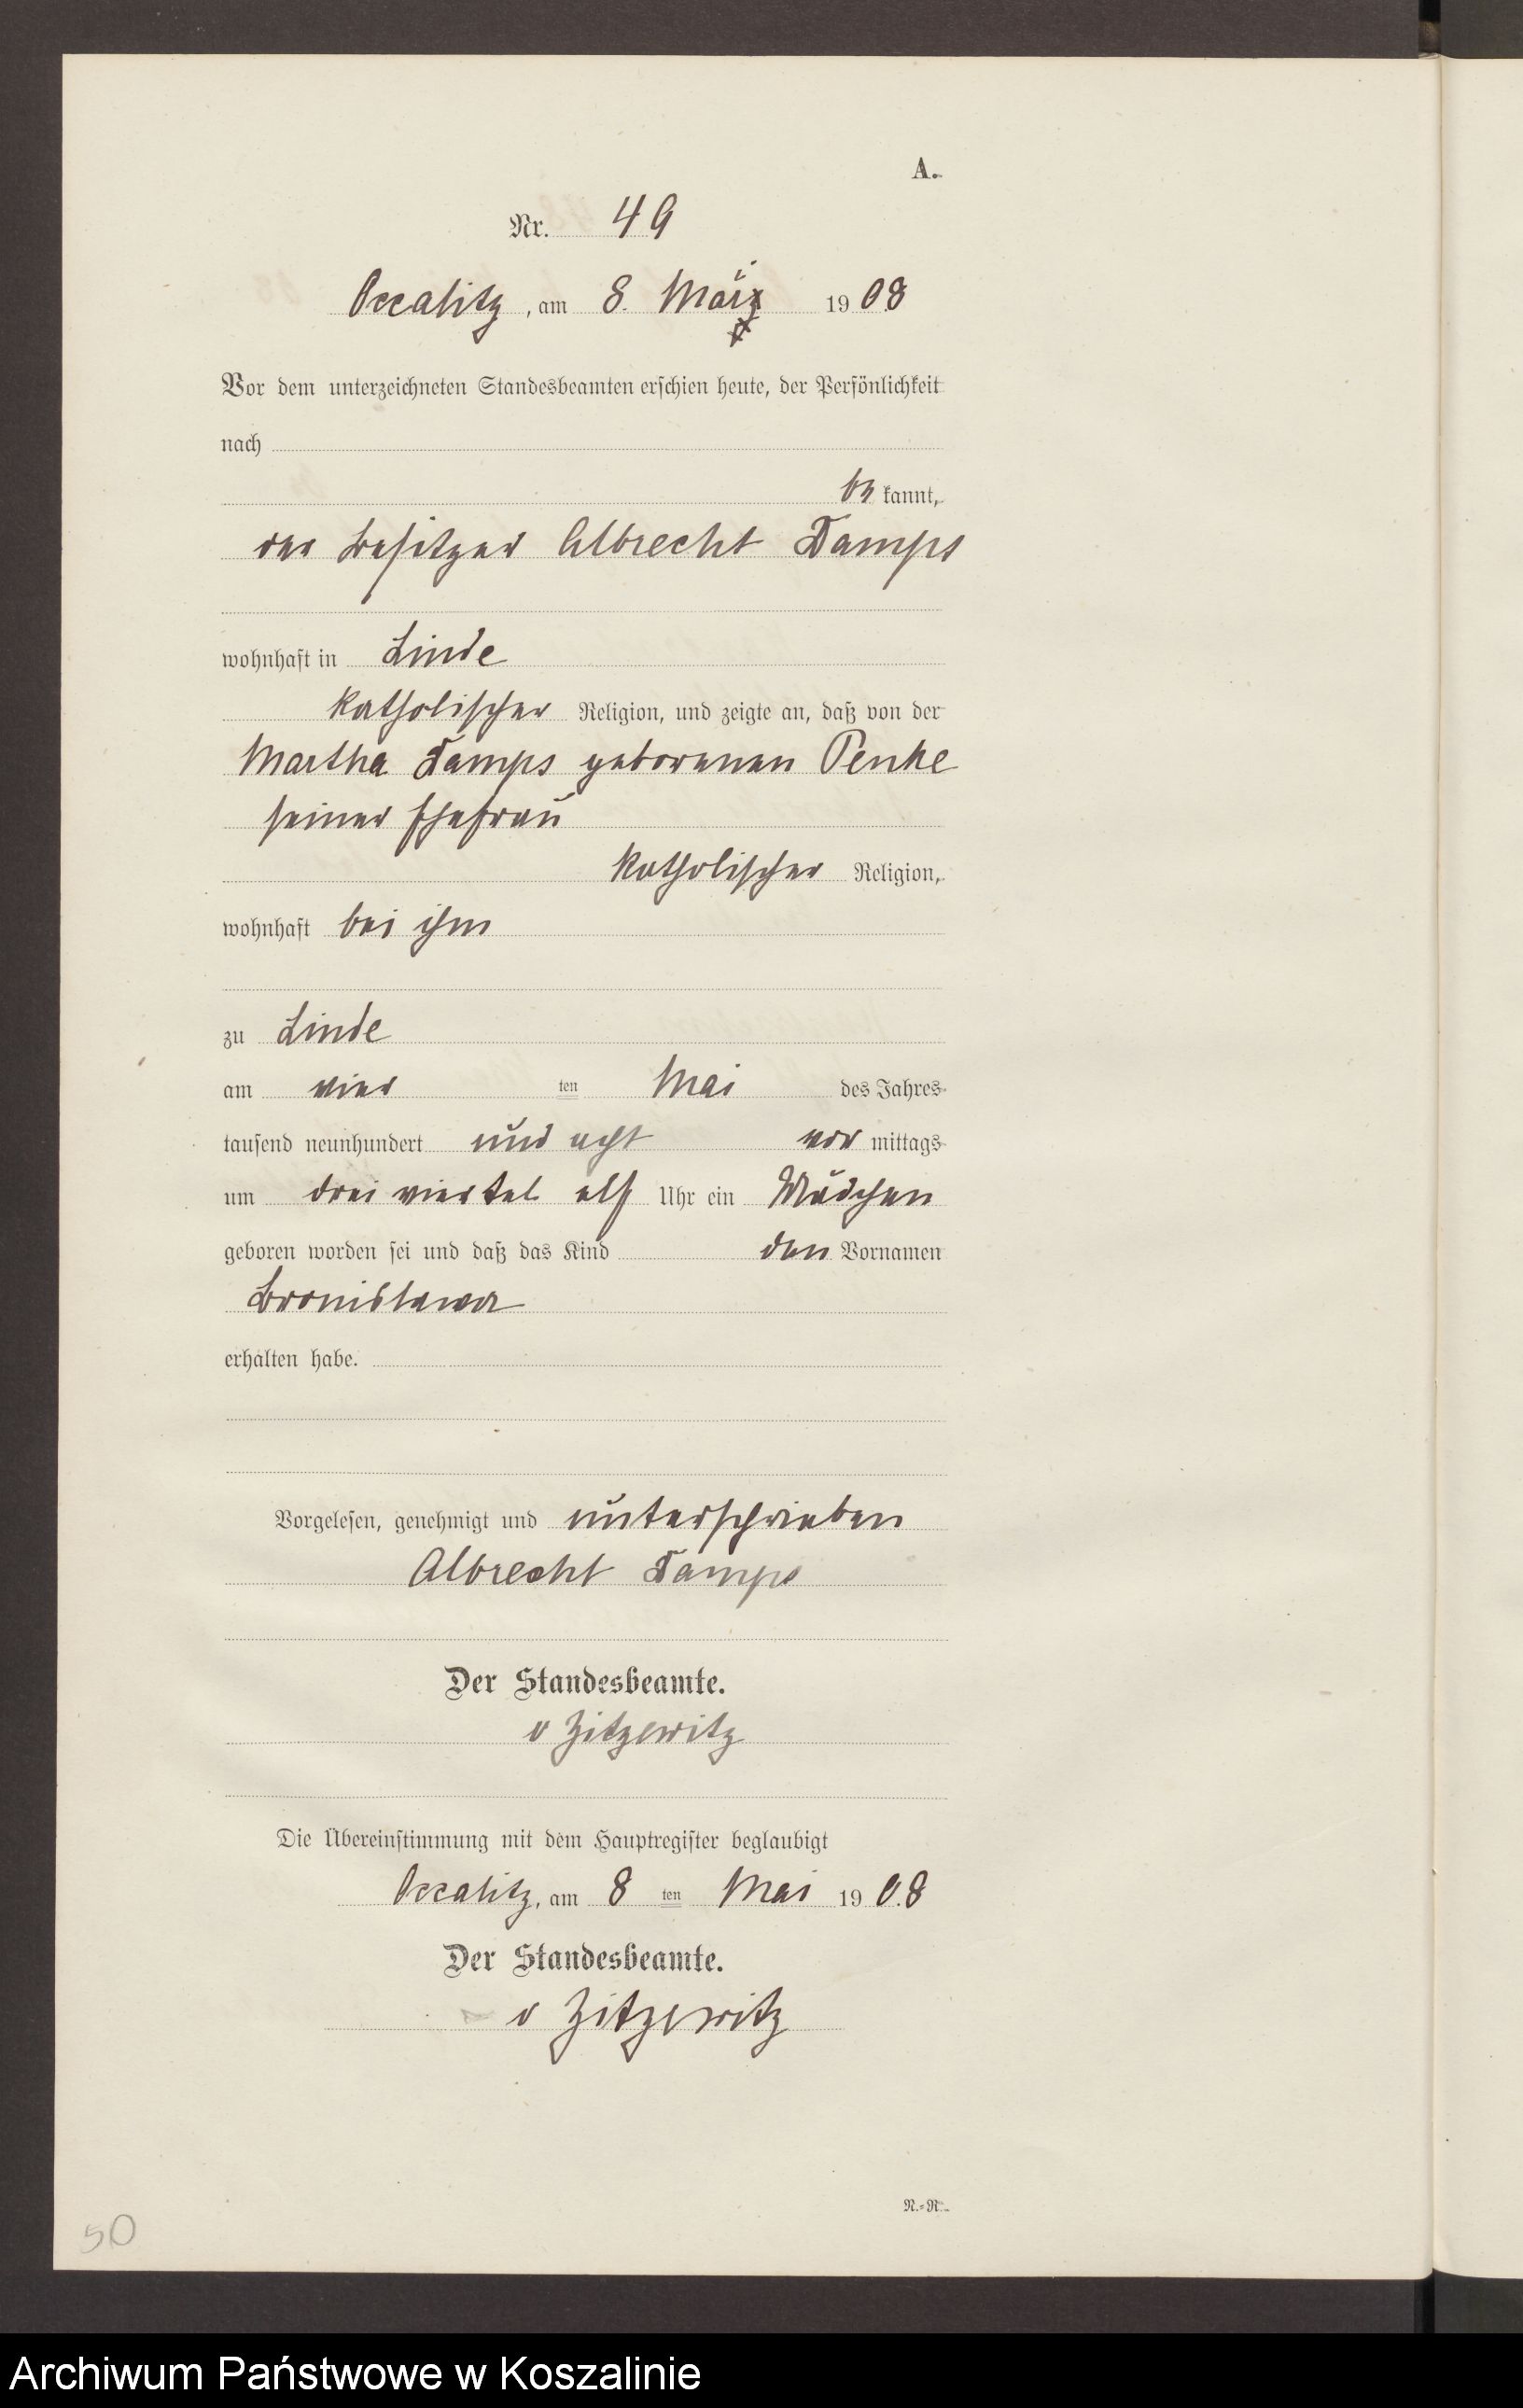 A.
Nr. 49
Occalitz, am 8. März 1908
Vor dem unterzeichneten Standesbeamten erschien heute, der Persönlichkeit
nach
be kannt,
der Besitzer Albrecht Damps
wohnhaft in Linde
katholischer Religion, und zeigte an, daß von der
Martha Damps geborenen Penke
seiner Ehefrau
katholischer Religion,
wohnhaft bei ihm
zu Linde
am vier ten Mai des Jahres
tausend neunhundert und acht vor mittags
um drei viertel elf Uhr ein Mädchen
geboren worden sei und daß das Kind den Vornamen
Bronislawa
erhalten habe.
Vorgelesen, genehmigt und unterschrieben
Albrecht Damps
Der Standesbeamte.
v Zitzewitz
Die Übereinstimmung mit dem Hauptregister beglaubigt
Occalitz, am 8 ten Mai 1908
Der Standesbeamte.
v Zitzewitz
N.=R.
50
Archiwum Państwowe w Koszalinie